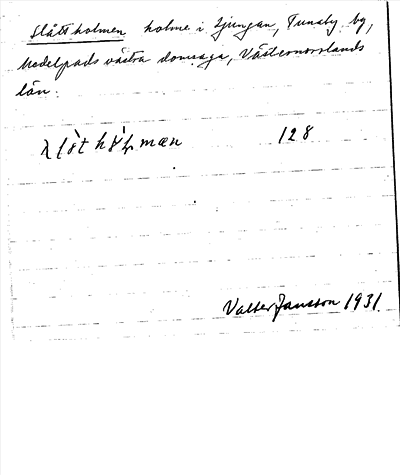 Slåttholmen holme i Ljungan, Tunsby by,
Medelpads västra domsaga, Västernorrlands
län.
128
Valter Jansson 1931.